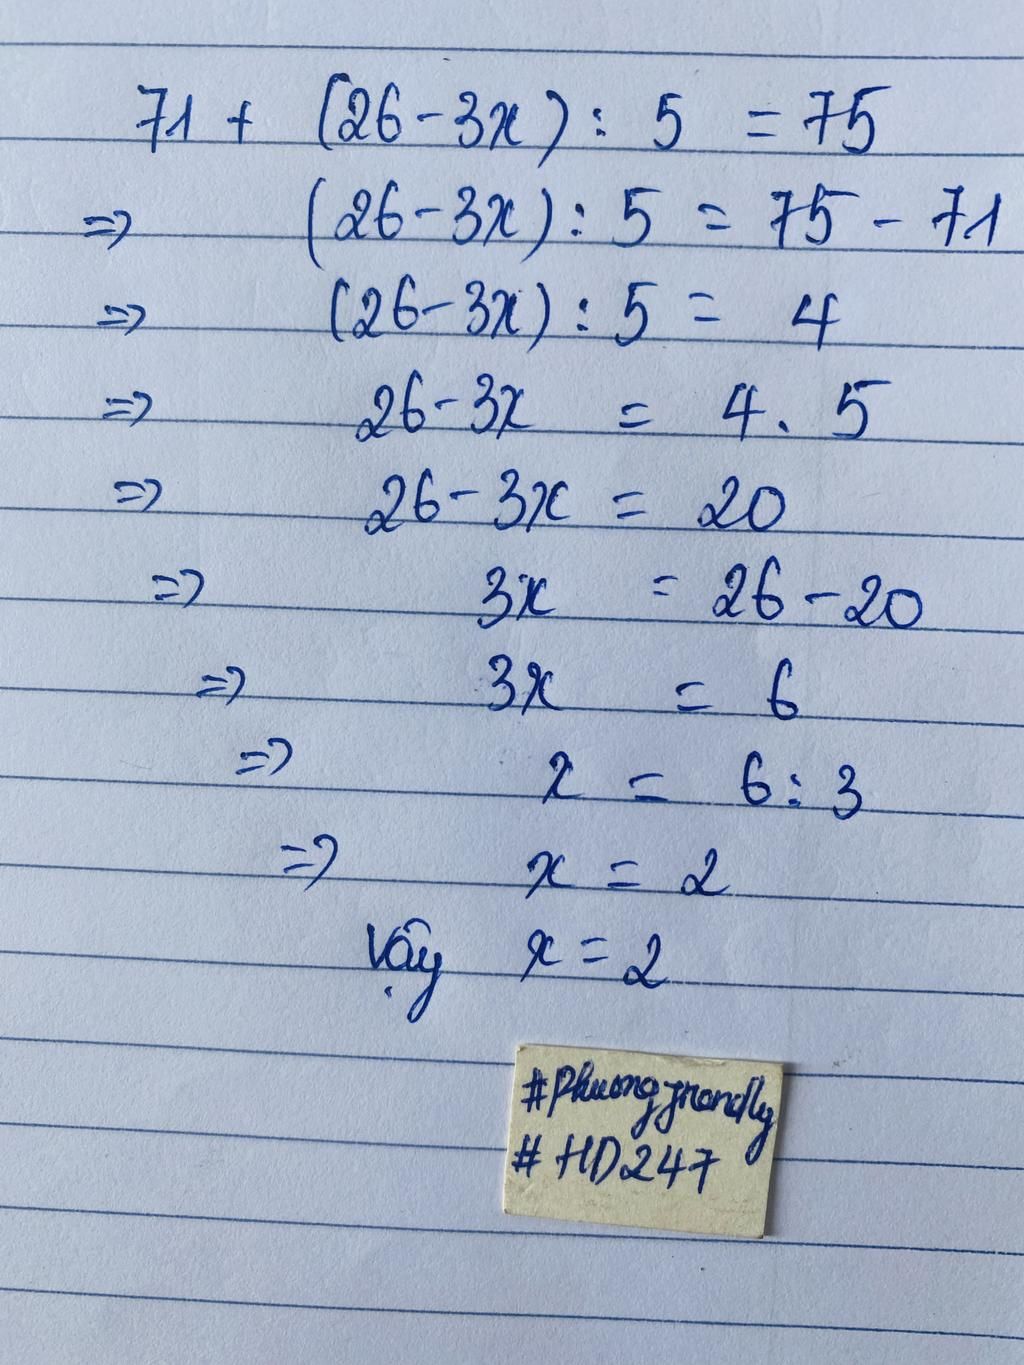 71 + (26-3x) : 5 = 75
=> (26-3x) : 5 = 75 - 71
=> (26-3x) : 5 = 4
=> 26-3x = 4 . 5
=> 26-3x = 20
=> 3x = 26-20
=> 3x = 6
=> x = 6:3
=> x = 2
Vậy x = 2
# HD247